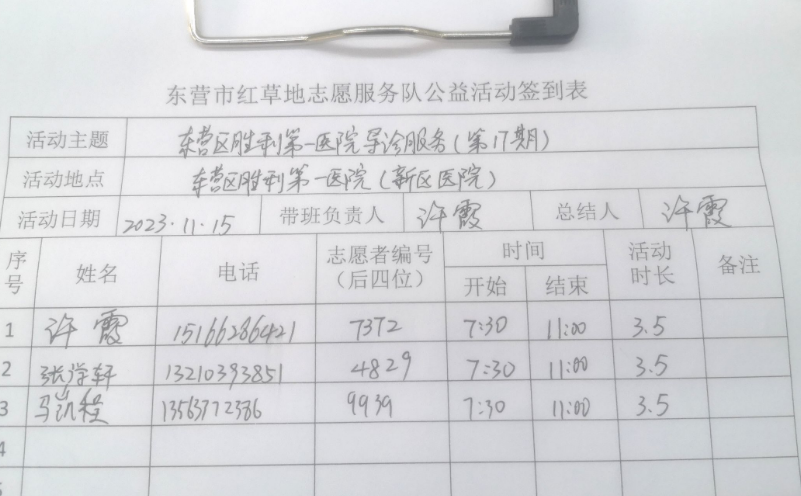 东营市红草地志愿服务队公益活动签到表
活动主题 东营区胜利第一医院导诊服务(第17期)
活动地点 东营区胜利第一医院(新区医院)
活动日期 2023.11.15 带班负责人 许霞 总结人 许霞
序号 姓名 电话 志愿者编号(后四位) 时间 开始 结束 活动时长 备注
1 许霞 15166286421 7372 7:30 11:00 3.5
2 张学轩 13210393851 4829 7:30 11:00 3.5
3 马凯程 13563772386 9939 7:30 11:00 3.5
4